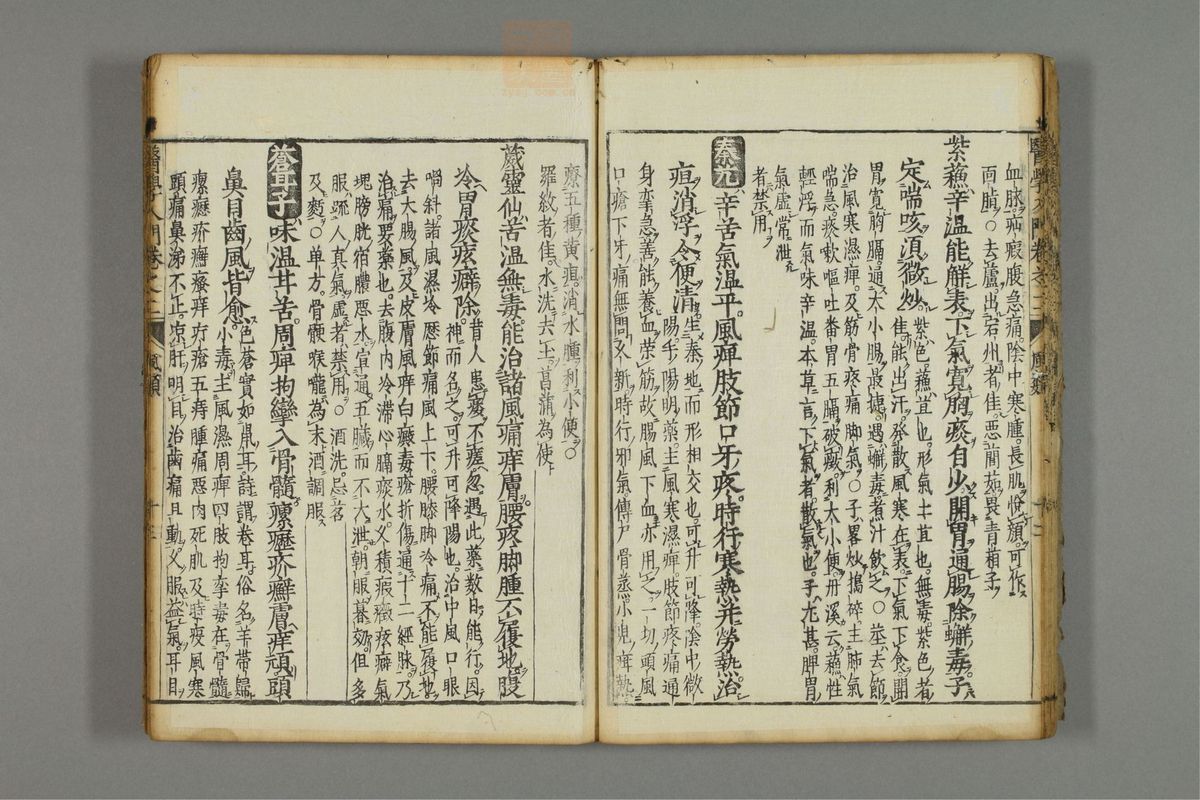 血脉疝瘕腹急痛陰中寒腫長肌悅顏可作
両臓○去蘆出宕州者佳惡蕳茹畏青葙子
紫蘇辛溫能解表下氣寬胸痰自少開胃通腸除蠏毒子
定喘咳須微炒紫色蘇宜也形氣土宜也無毒紫色者
佳能出汗発散風寒在表下氣下食開
胃寬胸膈通大小腸最捷遇蠏毒者汁飮之○莖去節
治風寒濕痺及筋骨疼痛脚氣○子畧炒搗碎主肺氣
喘急痰嗽嘔吐番胃五膈破癥利大小便丹溪云蘇性
輕浮而氣味辛溫本草言下氣者散氣也子尤甚脾胃
氣虛常泄
者禁用
秦艽辛苦氣溫平風痺肢節口牙疼時行寒熱并勞熱治
疸消浮令便清生秦地而形相交也可升可降陰中微
陽手陽明藥主風寒濕痺肢節疼痛通
身攣急善能養血榮筋故腸風下血亦用之一切頭風
口瘡下牙痛無問久新時行邪氣傳尸骨蒸小兒疳熱
療五種黄疸消水腫利小便○
羅紋者佳水洗去土菖蒲為使
葳靈仙苦溫無毒能治諸風痛痒膚腰疼脚腫不履地腹
冷胃痰痃癖除昔人患痿不瘥忽遇此藥数日能行因
神而名之可升可降陽也治中風口眼
喎斜諸風濕冷歷節痛風上下腰膝脚冷痛不能履地
去大腸風及皮膚風痒白癜毒瘡折傷通十二經脉乃
治痛要藥也去腹内冷滯心膈痰水久積瘕癥痃癖氣
塊膀胱宿膿惡水宣通五臓而不大泄朝服暮効但多
服疏人真氣虛者禁用○酒洗忌茗
及麫○单方骨鯁喉嚨為末酒調服
蒼耳子味溫甘苦周痺拘攣入骨髓瘰癧疥癬膚痒頑頭
鼻目齒風皆愈色蒼實如鼠耳詩謂卷耳俗名羊帶歸
小毒主風濕周痺四肢拘攣毒在骨髓
瘰癧疥癬瘙痒疔瘡五痔腫痛惡肉死肌及時疫風寒
頭痛鼻涕不止凉肝明目治齒痛且動久服益氣耳目
醫學入門卷之二
風類